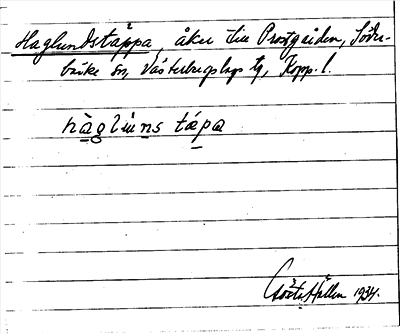 Haglundstäppa, åker till Prostgården, Söder-
bärke sn, Västerbergslags tg, Kopp. l.
hàgluns tǽpa
Gösta Hållen 1934.